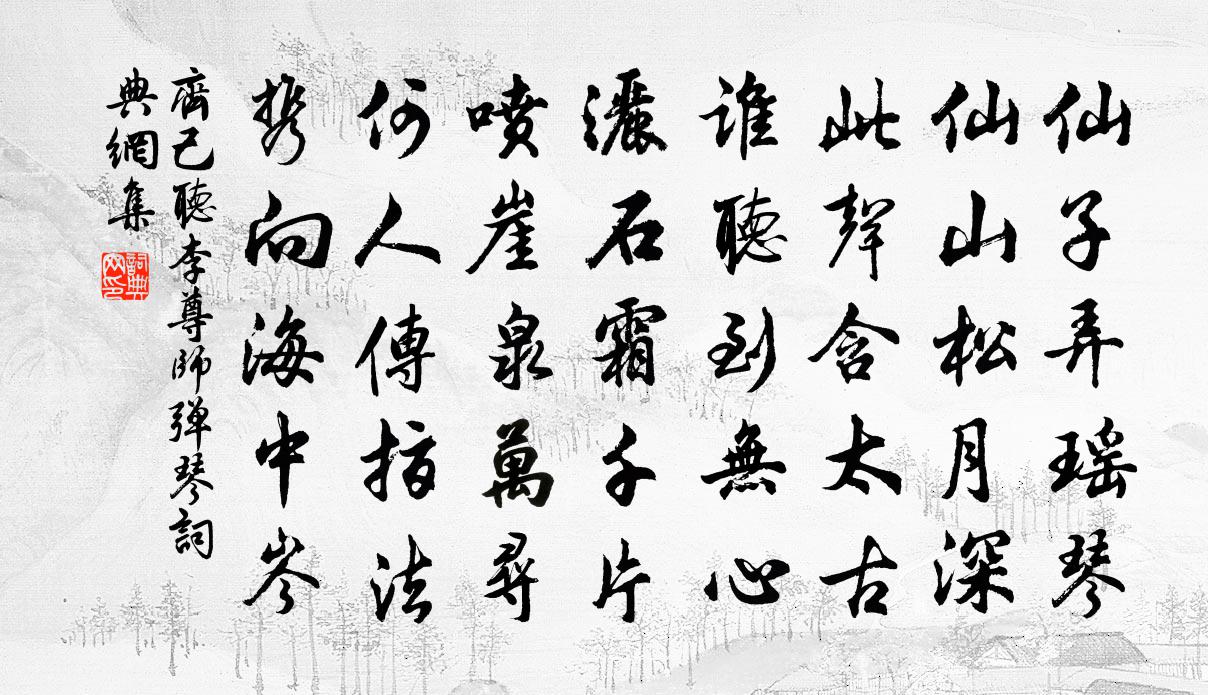 仙子弄瑶琴
仙山松月深
此聲含太古
誰聽到無心
灑石霜千片
噴崖泉萬尋
何人傳指法
携向海中岑
齊己聽李尊師弹琴詞
典網集
詞典
网印